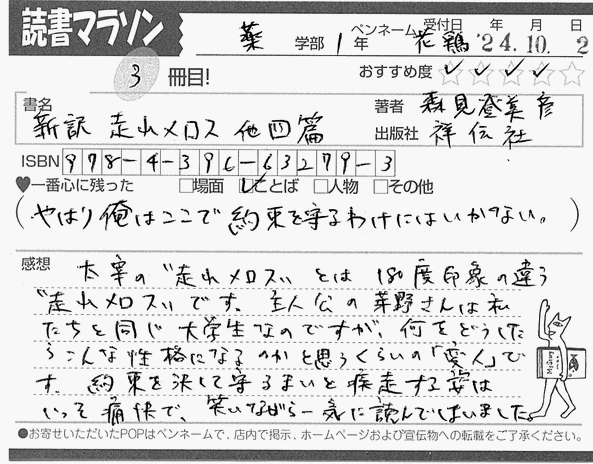 読書マラソン
薬 学部 1年 ペンネーム 花鶏 受付日 '24年10月2日
3 冊目!
おすすめ度 ☆☆☆☆☆
書名 新訳 走れメロス 他四篇
著者 森見登美彦
出版社 祥伝社
ISBN 978-4-396-63279-3
♥一番心に残った □場面 □ことば □人物 □その他
(やはり俺はここで約束を守るわけにはいかない。)
感想 太宰の“走れメロス”とは180度印象の違う
“走れメロス”です。主人公の芽野さんは私
たちと同じ大学生なのですが、何をどうした
らこんな性格になるのかと思うくらいの「変人」で
す。約束を決して守るまいと疾走する姿は
いっそ痛快で、笑いながら一気に読んでしまいました。
●お寄せいただいたPOPはペンネームで、店内で掲示、ホームページおよび宣伝物への転載をご了承ください。